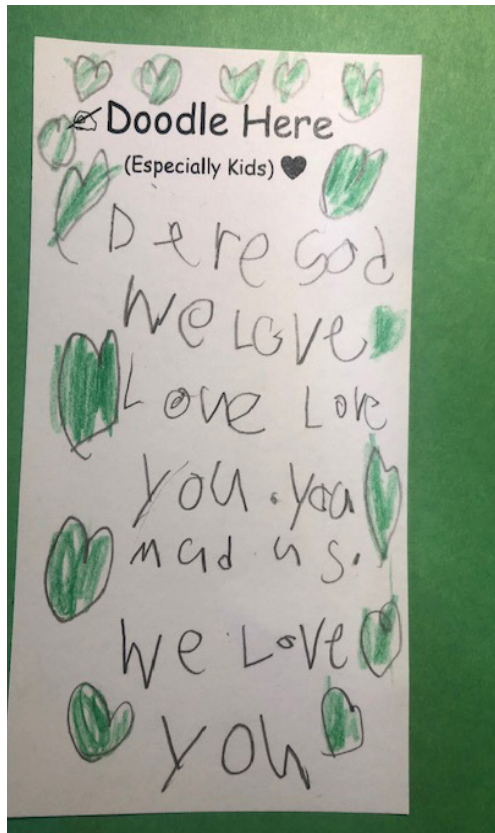 Doodle Here
(Especially Kids)
Dere God
We Love
Love Love
you. you
mad us.
We Love
you